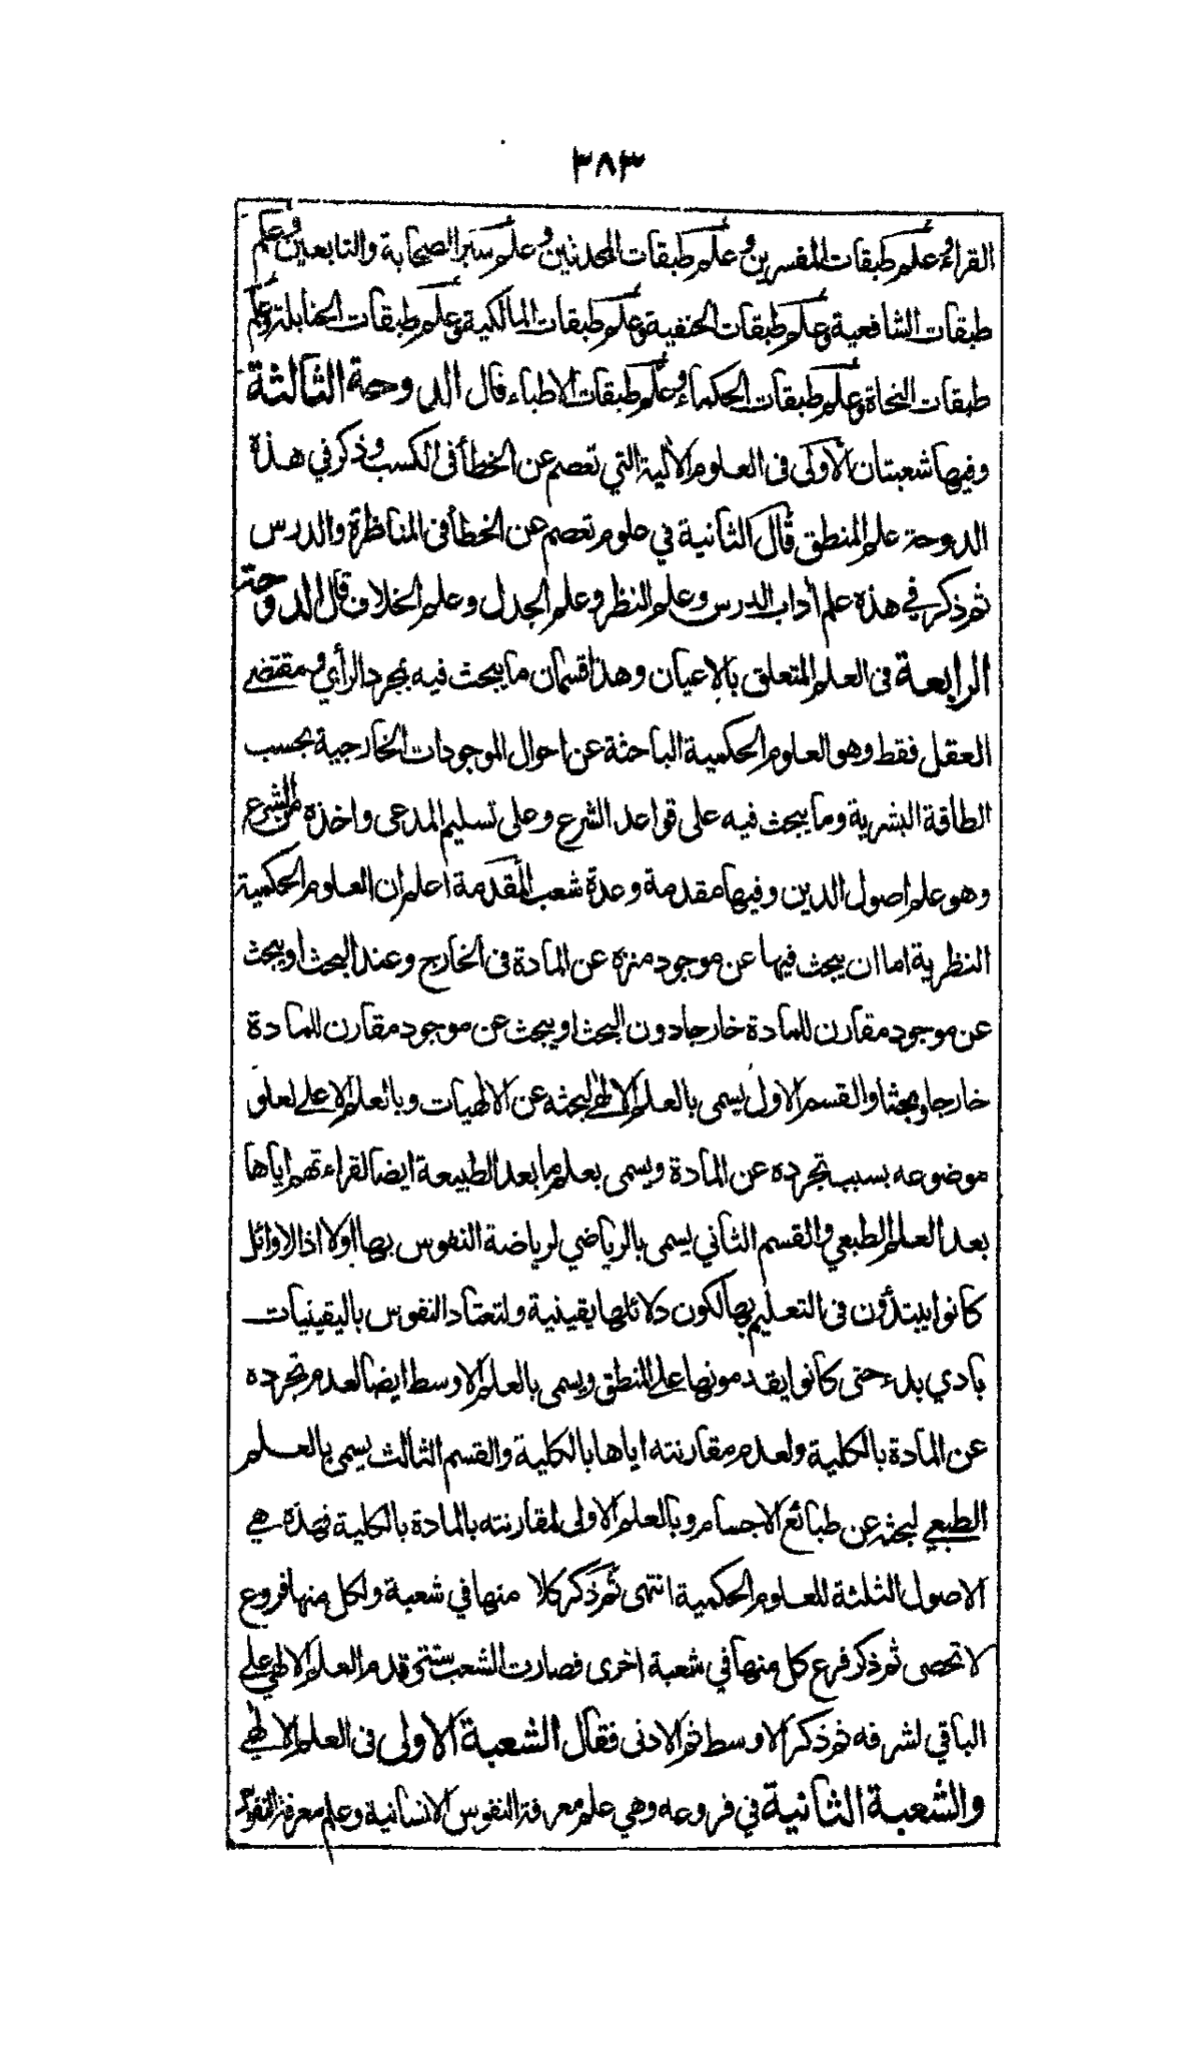 ٣٨٣
القراء وعلم طبقات المفسرين وعلم طبقات المحدثين وعلم سير الصحابة والتابعين وعلم
طبقات الشافعية وعلم طبقات الحنفية وعلم طبقات المالكية وعلم طبقات الحنابلة وعلم
طبقات النحاة وعلم طبقات الحكماء وعلم طبقات الاطباء قال الدوحة الثالثة
وفيها شعبتان الأولى فى العلوم الألية التي تعصم عن الخطأ فى الكسب وذكر في هذه
الدوحة علم المنطق قال الثانية في علوم تعصم عن الخطأ فى المناظرة والدرس
ثم ذكر في هذه علم أداب الدرس وعلم النظر وعلم الجدل وعلم الخلاف قال الدوحة
الرابعة فى العلم المتعلق بالاعيان وهذا قسمان ما يبحث فيه بمجرد الرأي ومقتضى
العقل فقط وهو العلوم الحكمية الباحثة عن احوال الموجودات الخارجية بحسب
الطاقة البشرية وما يبحث فيه على قواعد الشرع وعلى تسليم المدعى واخذه من الشرع
وهو علم اصول الدين وفيها مقدمة وعدة شعب المقدمة اعلم ان العلوم الحكمية
النظرية اما ان يبحث فيها عن موجود منزه عن المادة فى الخارج وعند البحث او يبحث
عن موجود مقارن للمادة خارجا دون البحث او يبحث عن موجود مقارن للمادة
خارجا وبحثا والقسم الاول يسمى بالعلم الالهى لبحثه عن الالهيات وبالعلم الاعلى لعلو
موضوعه بسبب تجرده عن المادة ويسمى بعلم ما بعد الطبيعة ايضا لقراءتهم اياها
بعد العلم الطبعي والقسم الثاني يسمى بالرياضي لرياضة النفوس بها اولا اذ الاوائل
كانوا يبتدؤن فى التعليم بها لكون دلائلها يقينية ولتعتاد النفوس باليقينيات
بادي بدء حتى كانوا يقدمونها على المنطق ويسمى بالعلم الاوسط ايضا لعدم تجرده
عن المادة بالكلية ولعدم مقارنته اياها بالكلية والقسم الثالث يسمى بالعلم
الطبعي لبحثه عن طبائع الاجسام وبالعلم الاولى لمقارنته بالمادة بالكلية فهذه هي
الاصول الثلثة للعلوم الحكمية انتهى ثم ذكر كلا منها في شعبة ولكل منها فروع
لا تحصى ثم ذكر فرع كل منها في شعبة اخرى فصارت الشعب ستة وقدم العلم الالهي على
الباقي لشرفه ثم ذكر الاوسط ثم الادنى فقال الشعبة الاولى فى العلم الالهي
والشعبة الثانية في فروعه وهي علم معرفة النفوس الانسانية وعلم معرفة النفوس